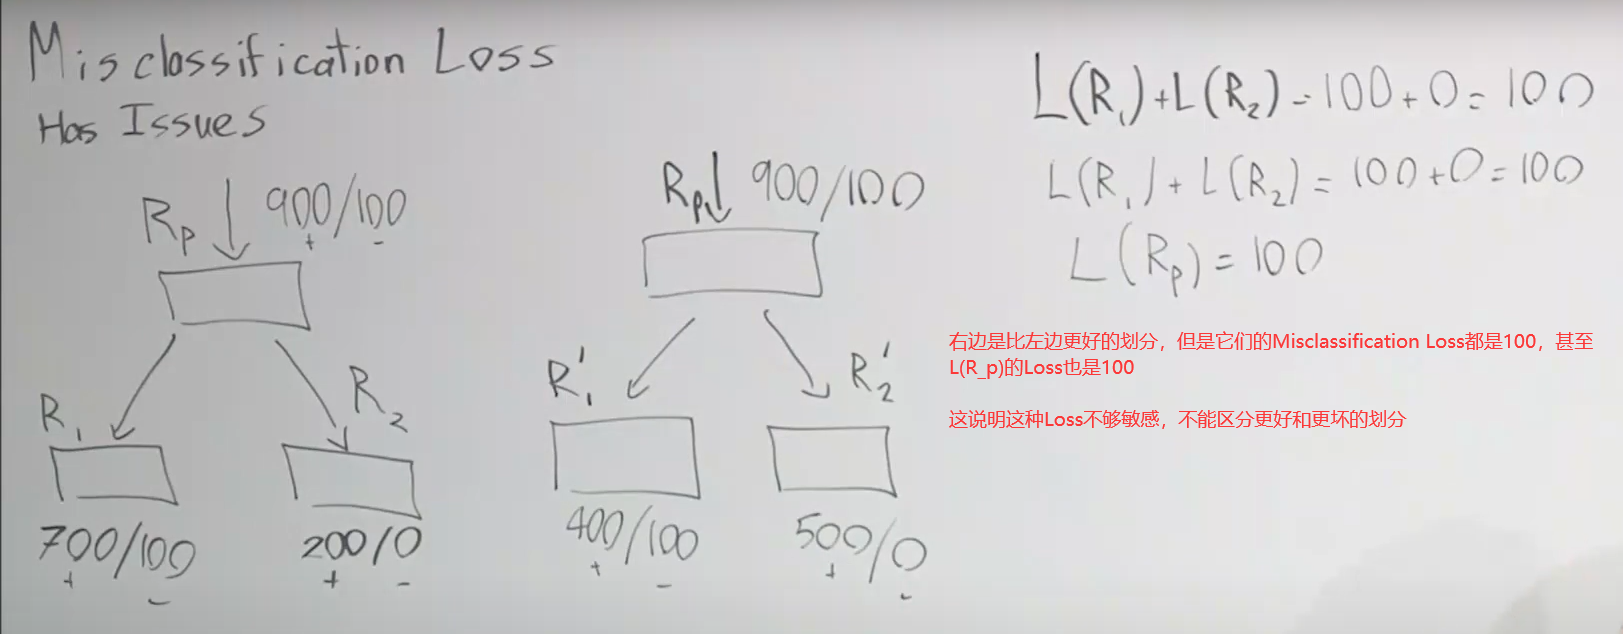 Misclassification Loss
Has Issues
Rp 900/100
+ -
R1 R2
700/100 200/0
+ - + -
Rp 900/100
R'1 R'2
400/100 500/0
+ - + -
L(R1)+L(R2) = 100+0= 100
L(R1) + L(R2) = 100+0=100
L(Rp) = 100
右边是比左边更好的划分，但是它们的Misclassification Loss都是100，甚至
L(R_p)的Loss也是100
这说明这种Loss不够敏感，不能区分更好和更坏的划分